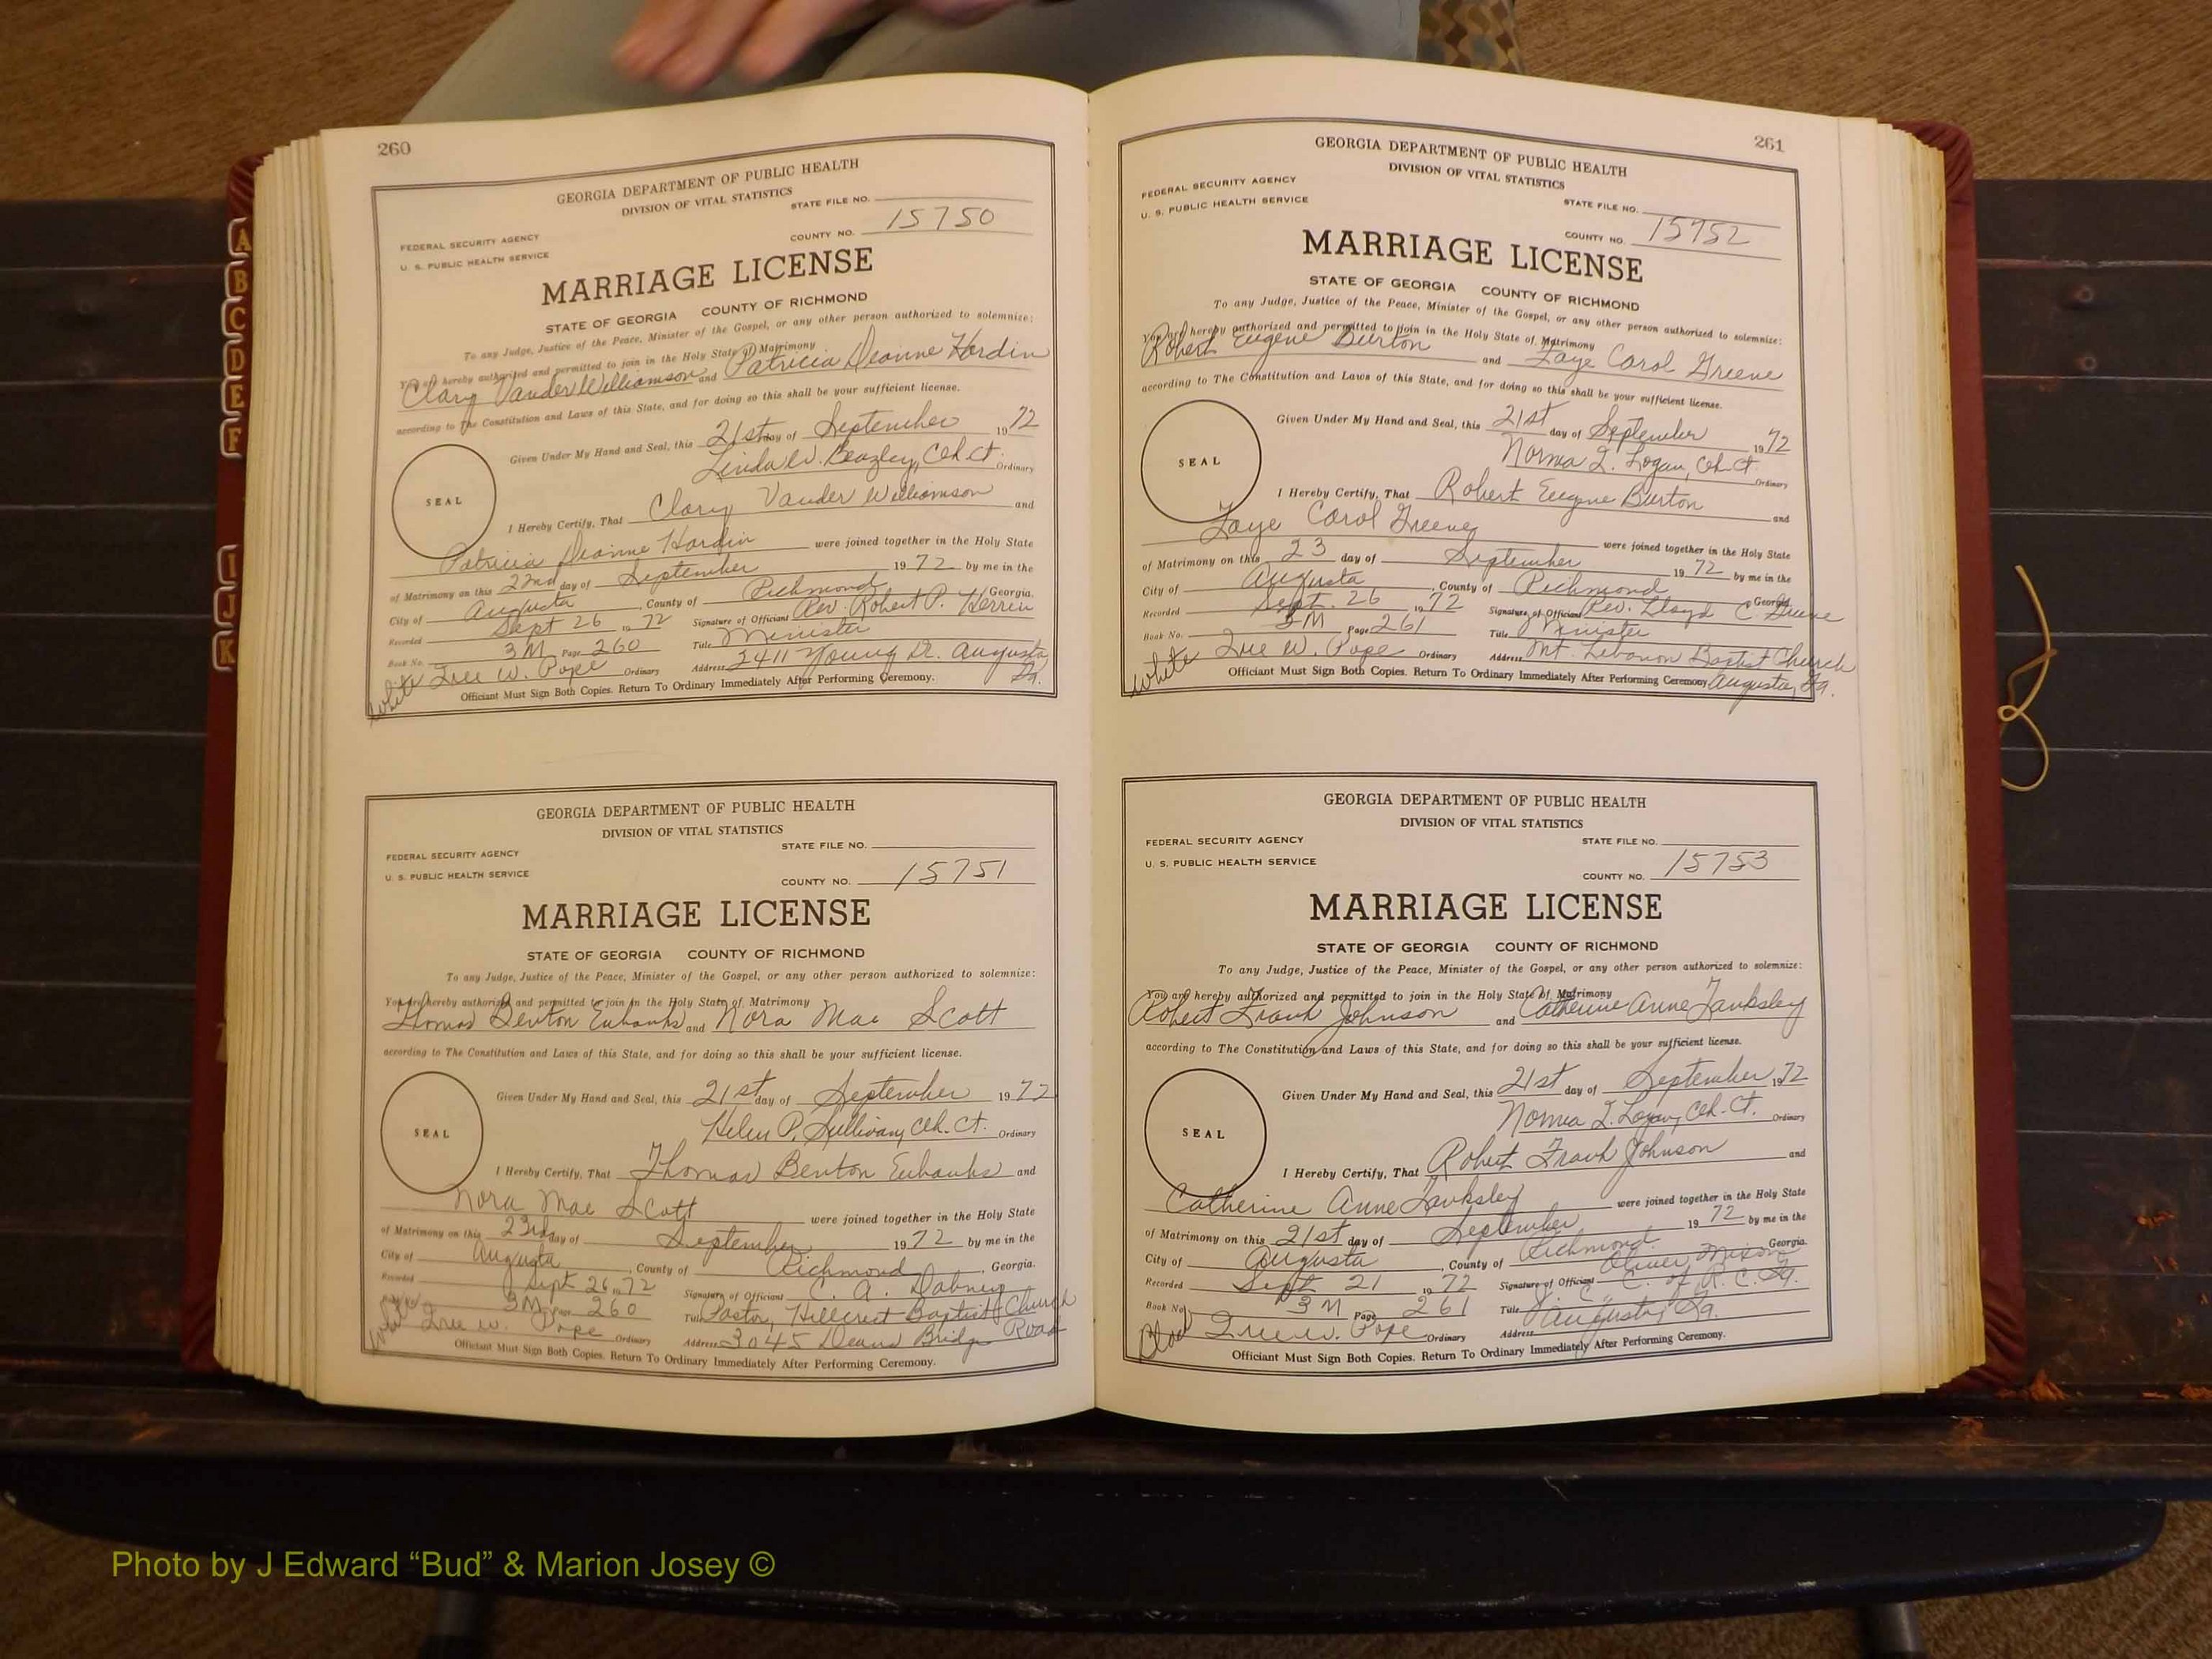 260
GEORGIA DEPARTMENT OF PUBLIC HEALTH
DIVISION OF VITAL STATISTICS
STATE FILE NO.
FEDERAL SECURITY AGENCY
U. S. PUBLIC HEALTH SERVICE
COUNTY NO. 15750
MARRIAGE LICENSE
STATE OF GEORGIA COUNTY OF RICHMOND
To any Judge, Justice of the Peace, Minister of the Gospel, or any other person authorized to solemnize:
You are hereby authorized and permitted to join in the Holy State of Matrimony
Clary Vander Williamson and Patricia Deanne Hardin
according to The Constitution and Laws of this State, and for doing so this shall be your sufficient license.
Given Under My Hand and Seal, this 21st day of September 1972
Linda W. Beazley, Clk. Ct. Ordinary
SEAL
I Hereby Certify, That Clary Vander Williamson and
Patricia Deanne Hardin were joined together in the Holy State
of Matrimony on this 22nd day of September 1972 by me in the
City of Augusta, County of Richmond, Georgia.
Recorded Sept 26 1972 Signature of Officiant Rev. Robert P. Herrin
Book No. 3M Page 260 Title Minister
White Iree W. Pope Ordinary Address 2411 Young Dr. Augusta, Ga.
Officiant Must Sign Both Copies. Return To Ordinary Immediately After Performing Ceremony.
GEORGIA DEPARTMENT OF PUBLIC HEALTH
DIVISION OF VITAL STATISTICS
STATE FILE NO.
FEDERAL SECURITY AGENCY
U. S. PUBLIC HEALTH SERVICE
COUNTY NO. 15751
MARRIAGE LICENSE
STATE OF GEORGIA COUNTY OF RICHMOND
To any Judge, Justice of the Peace, Minister of the Gospel, or any other person authorized to solemnize:
You are hereby authorized and permitted to join in the Holy State of Matrimony
Thomas Benton Eubanks and Nora Mae Scott
according to The Constitution and Laws of this State, and for doing so this shall be your sufficient license.
Given Under My Hand and Seal, this 21st day of September 1972
Helen P. Sullivan, Clk. Ct. Ordinary
SEAL
I Hereby Certify, That Thomas Benton Eubanks and
Nora Mae Scott were joined together in the Holy State
of Matrimony on this 23rd day of September 1972 by me in the
City of Augusta, County of Richmond, Georgia.
Recorded Sept 26 1972 Signature of Officiant C. A. Dabney
Book No. 3M Page 260 Title Pastor, Hillcrest Baptist Church
White Iree W. Pope Ordinary Address 3045 Deans Bridge Road
Officiant Must Sign Both Copies. Return To Ordinary Immediately After Performing Ceremony.
261
GEORGIA DEPARTMENT OF PUBLIC HEALTH
DIVISION OF VITAL STATISTICS
FEDERAL SECURITY AGENCY
U. S. PUBLIC HEALTH SERVICE
STATE FILE NO.
COUNTY NO. 15752
MARRIAGE LICENSE
STATE OF GEORGIA COUNTY OF RICHMOND
To any Judge, Justice of the Peace, Minister of the Gospel, or any other person authorized to solemnize:
You are hereby authorized and permitted to join in the Holy State of Matrimony
Robert Eugene Burton and Faye Carol Greene
according to The Constitution and Laws of this State, and for doing so this shall be your sufficient license.
Given Under My Hand and Seal, this 21st day of September 1972
Norma I. Logan, Clk. Ct. Ordinary
SEAL
I Hereby Certify, That Robert Eugene Burton and
Faye Carol Greene were joined together in the Holy State
of Matrimony on this 23 day of September 1972 by me in the
City of Augusta, County of Richmond, Georgia
Recorded Sept. 26 1972 Signature of Officiant Rev. Lloyd C. Greene
Book No. 3M Page 261 Title Minister
White Iree W. Pope Ordinary Address Mt. Lebanon Baptist Church
Officiant Must Sign Both Copies. Return To Ordinary Immediately After Performing Ceremony. Augusta, Ga.
GEORGIA DEPARTMENT OF PUBLIC HEALTH
DIVISION OF VITAL STATISTICS
FEDERAL SECURITY AGENCY
U. S. PUBLIC HEALTH SERVICE
STATE FILE NO.
COUNTY NO. 15753
MARRIAGE LICENSE
STATE OF GEORGIA COUNTY OF RICHMOND
To any Judge, Justice of the Peace, Minister of the Gospel, or any other person authorized to solemnize:
You are hereby authorized and permitted to join in the Holy State of Matrimony
Robert Frank Johnson and Catherine Anne Tanksley
according to The Constitution and Laws of this State, and for doing so this shall be your sufficient license.
Given Under My Hand and Seal, this 21st day of September 1972
Norma I. Logan, Clk. Ct. Ordinary
SEAL
I Hereby Certify, That Robert Frank Johnson and
Catherine Anne Tanksley were joined together in the Holy State
of Matrimony on this 21st day of September 1972 by me in the
City of Augusta, County of Richmond, Georgia.
Recorded Sept 21 1972 Signature of Officiant Oliver Mixon
Book No. 3M Page 261 Title C. of R. C. Ga.
Iree W. Pope Ordinary Address Augusta, Ga.
Officiant Must Sign Both Copies. Return To Ordinary Immediately After Performing Ceremony.
A
B
C
D
E
F
I
J
K
Photo by J Edward “Bud” & Marion Josey ©